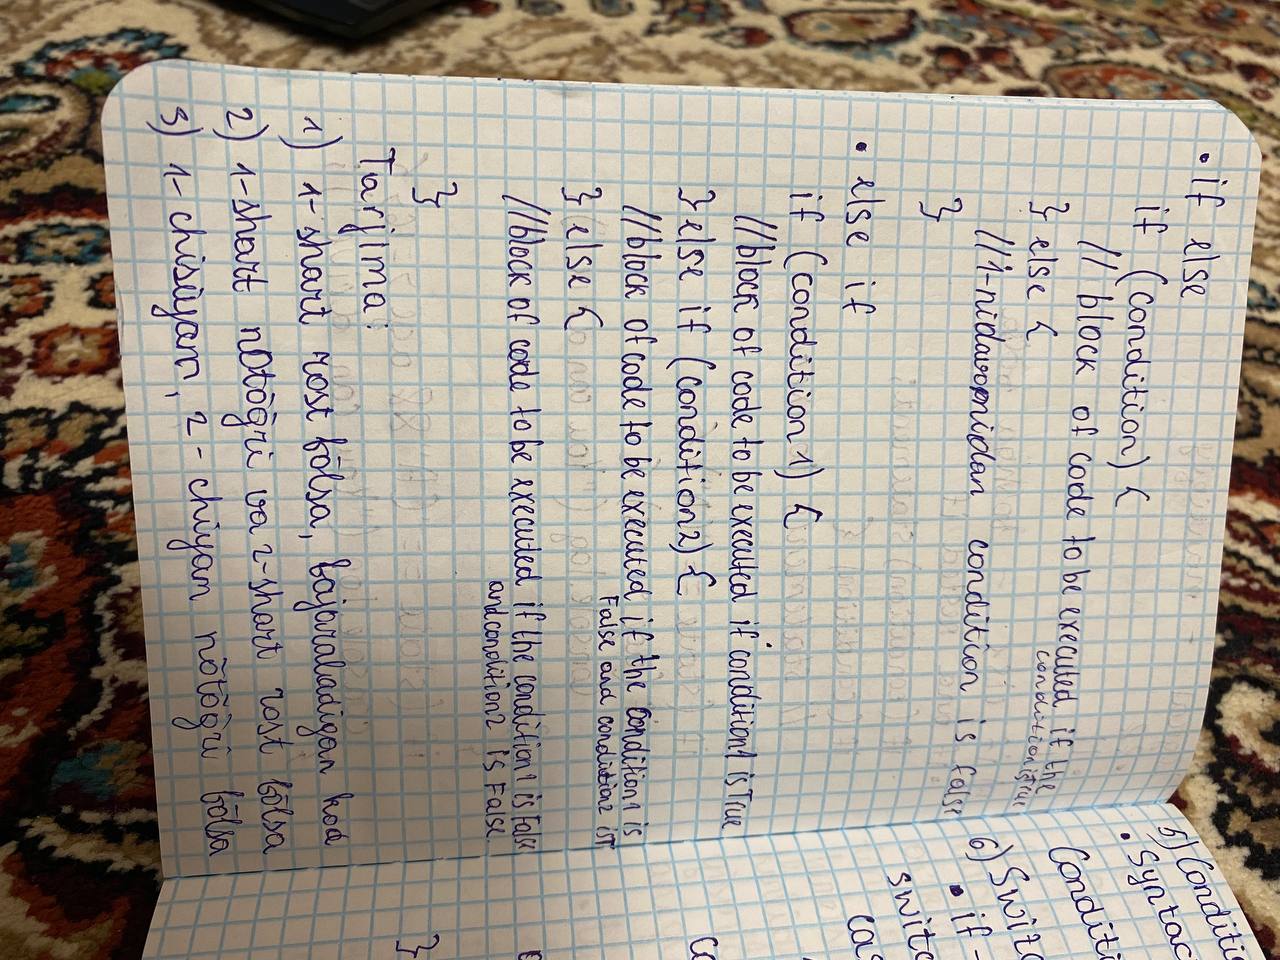 • if else
if (condition) {
// block of code to be executed if the
condition is true
} else {
//1-nidan condition is false
}
• else if
if (condition1) {
//block of code to be executed if condition1 is True
} else if (condition2) {
//block of code to be executed if the condition1 is
False and condition2 is
} else {
//block of code to be executed if the condition1 is False
and condition2 is False
}
Tarjima:
1) 1-shart rost bōlsa, bajaraladigan kod
2) 1-shart notōğri va 2-shart rost bōlsa
3) 1-chisiyam, 2-chiyam nōtōğri bōlsa
5) Conditi
• Syntac
Conditi
6) Switc
• if-
switc
cas
ca
}